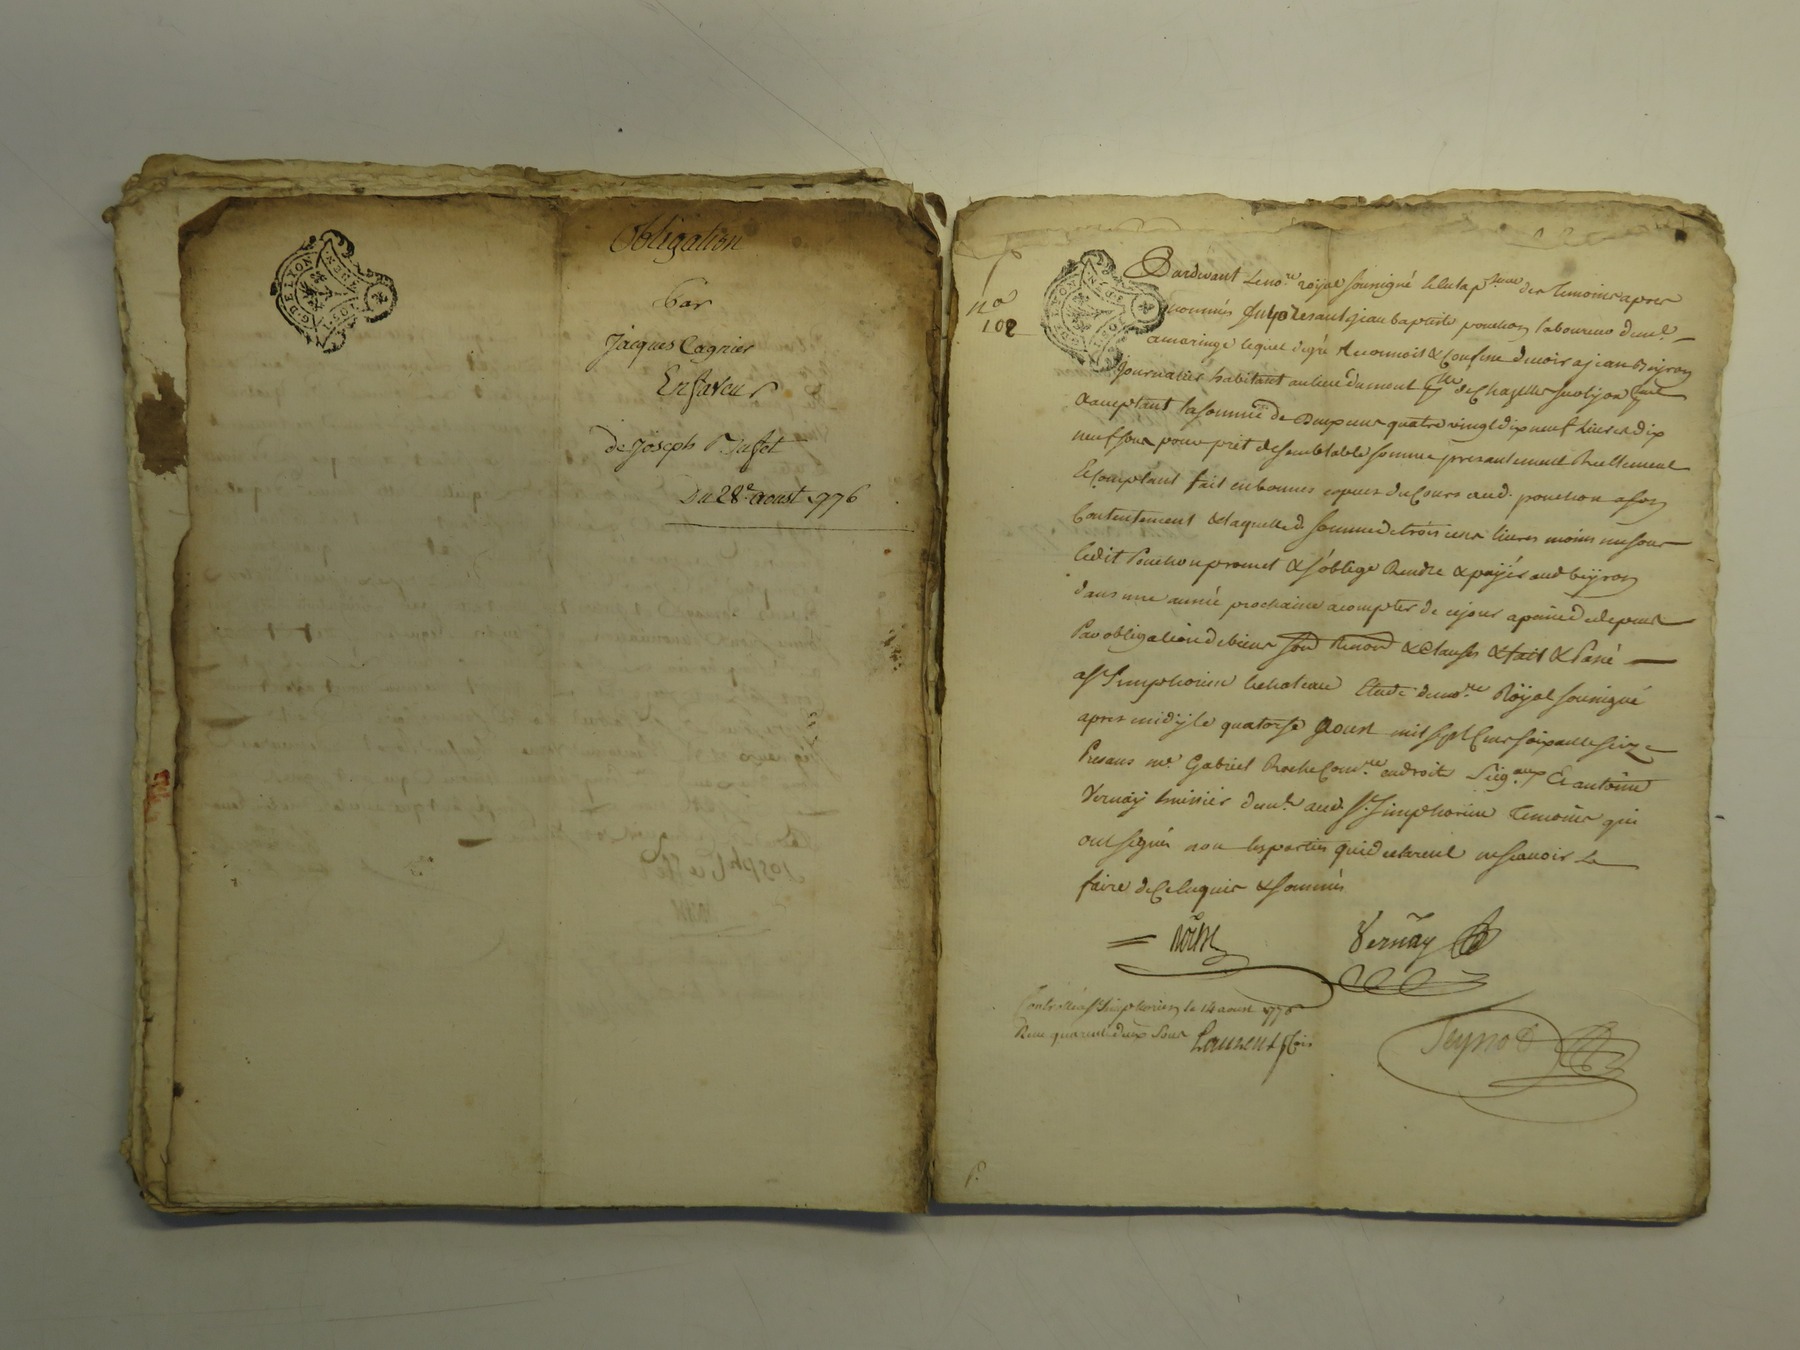 G. DE LYON
Obligation
Par
Jacques Cagnier
En faveur
de Joseph
Du 28e aoust 1776
no
102
G. DE LYON
Pardevant le nore royal soussigné & les temoins apres
nommés fut present jean baptiste ponchon laboureur demt
a maringe lequel de gré reconnoit & confesse devoir a jean Beyron
journalier habitant au lieu du mont de Chazelle sur lyon
acceptant la somme de deux cens quatre vingt dix neuf livres dix
neuf sous pour prêt de semblable somme presentement reellement
& comptant fait en bonnes especes du cours aud. ponchon a son
contentement & laquelle d. somme de trois cens livres moins un sous
ledit Ponchon promet & s'oblige rendre & payer aud beyron
dans une année prochaine a compter de ce jour a peine de depens
Par obligation de biens & clauses & fait & Passé
a St Simphorien le chateau Etude du nore Röyal soussigné
apres midy le quatorse Aoust mil sept cens soixante seize
Presans me. Gabriel Roche en droit & antoine
Vernay huissier demt aud. St. Simphorien Temoins qui
ont signés non les parties qui de ont declarés ne scavoir le
faire de ce enquis & sommés
Roche
Vernay
Controllé a St Simphorien le 14 aoust 1776
Reçu quarente deux sous Laurenson